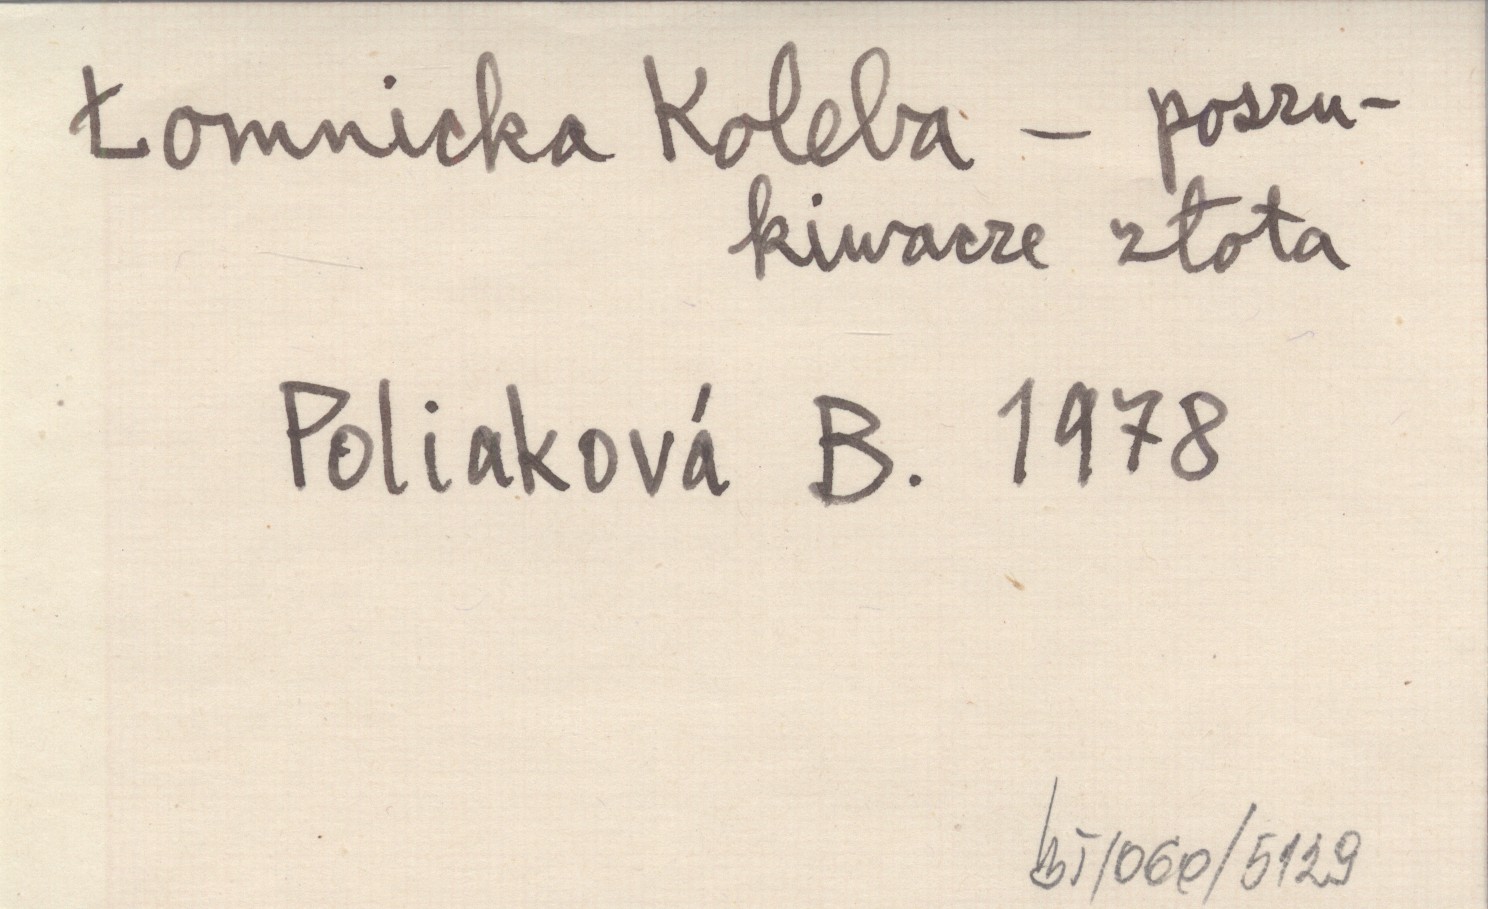 Łomnicka Koleba – poszu-
kiwacze złota
Poliaková B. 1978
/5129